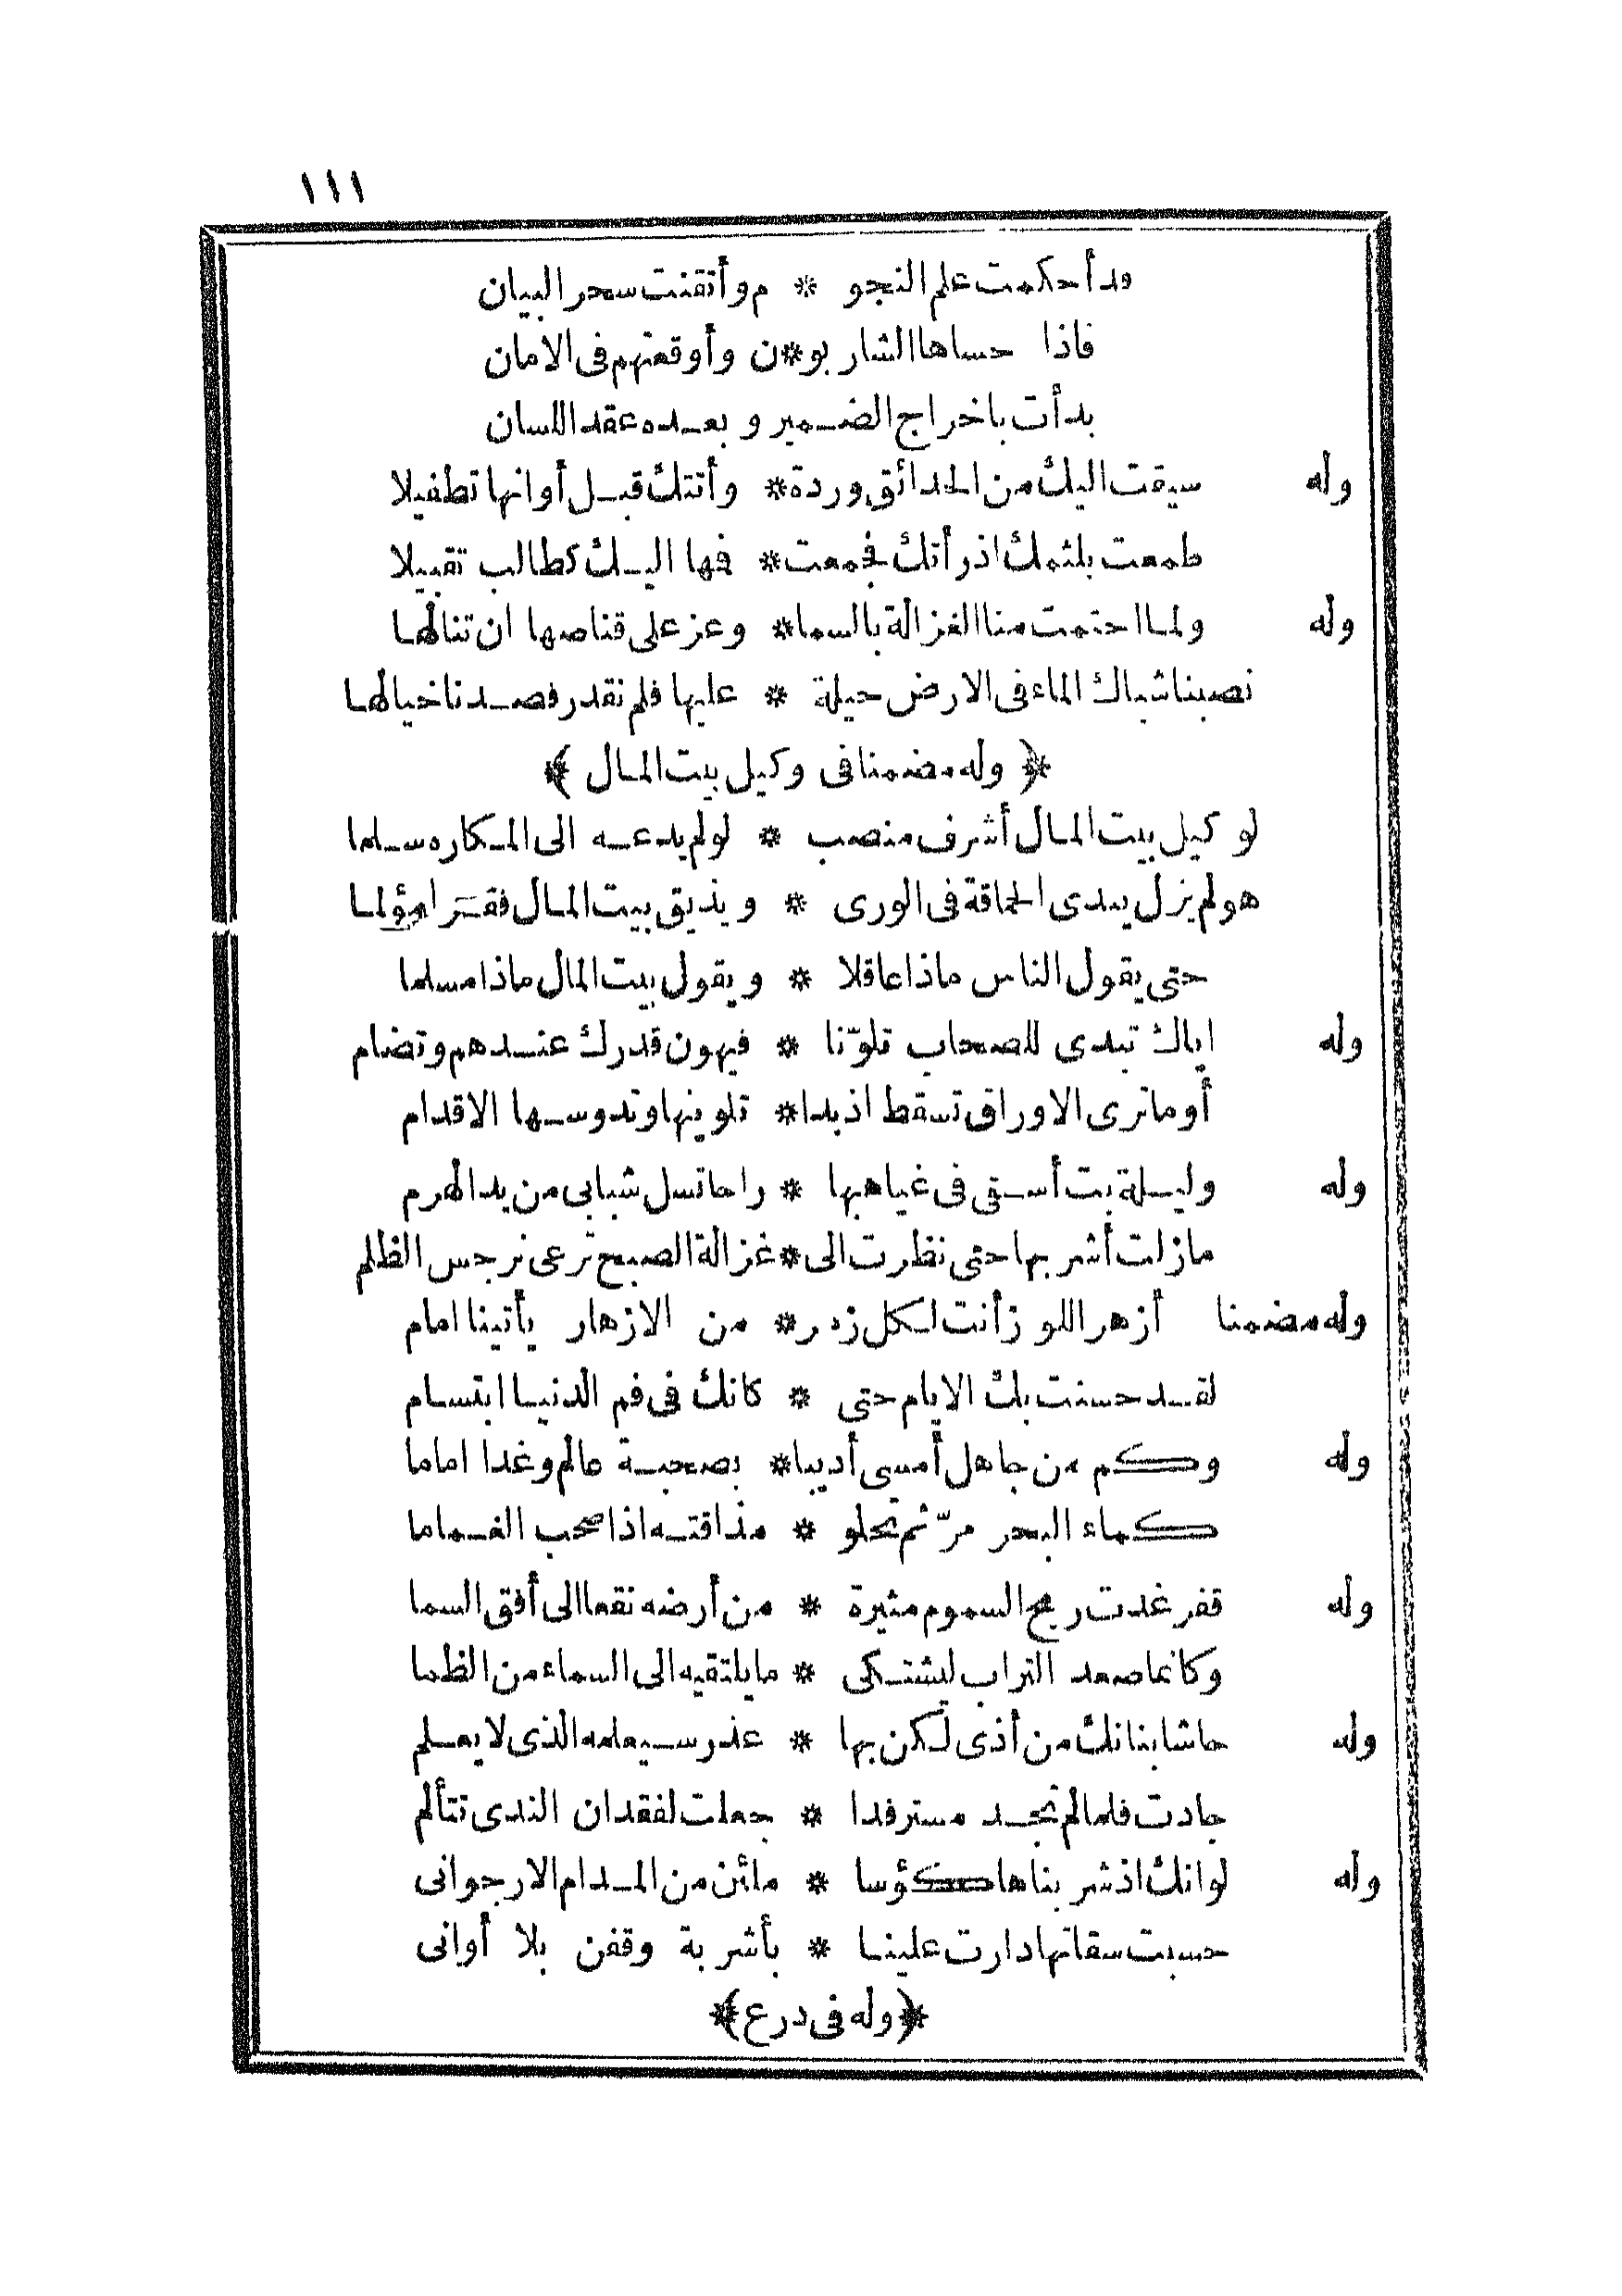 ١١١
قد أحكمت علم النجو * م وأتقنت سحر البيان
فاذا حساها الشاربو*ن وأوقعتهم فى الامان
بدأت باخراج الضمير وبعده عقد اللسان
وله سيقت اليك من الحدائق وردة* وأتتك قبل أوانها تطفيلا
طمعت بلثمك اذ رأتك فجمعت* فمها اليك كطالب تقبيلا
وله ولما احتمت منا الغزالة بالسما* وعز على قناصها ان تنالها
نصبنا شباك الماء فى الارض حيلة * عليها فلم نقدر فصدنا خيالها
﴿ وله مضمنا فى وكيل بيت المال ﴾
لو كيل بيت المال أشرف منصب * لو لم يدعه الى المكاره سلما
هو لم يزل يبدى الحماقة فى الورى * ويذيق بيت المال فقرا مؤلما
حتى يقول الناس ماذا عاقلا * ويقول بيت المال ماذا مسلما
وله اياك تبدى للصحاب تلوّنا * فيهون قدرك عندهم وتضام
أو ماترى الاوراق تسقط اذ بدا* تلوينها وتدوسها الاقدام
وله وليلة بت أسقى فى غياهبها * راحا تسل شبابى من يد الهرم
مازلت أشربها حتى نظرت الى* غزالة الصبح ترعى نرجس الظلم
وله مضمنا أزهر اللوز أنت لكل زهر* من الازهار يأتينا امام
لقد حسنت بك الايام حتى * كانك فى فم الدنيا ابتسام
وله وكم من جاهل أمسى أديبا* بصحبة عالم وغدا اماما
كماء البحر مرّ ثم تحلو * مذاقته اذا صحب الغماما
وله قفر غدت ريح السموم مثيرة * من أرضه نقعا الى أفق السما
وكانما صعد التراب ليشتكى * ما يلتقيه الى السماء من الظما
وله حاشا بنانك من أذى لكن بها * عذر سيعلمه الذى لا يعلم
جادت فلما لم تجد مسترفدا * جعلت لفقدان الندى تتألم
وله لو انك اذ شربناها كؤسا * ملئن من المدام الارجوانى
حسبت سقاتها دارت علينا * بأشربة وقفن بلا أوانى
﴿وله فى درع﴾